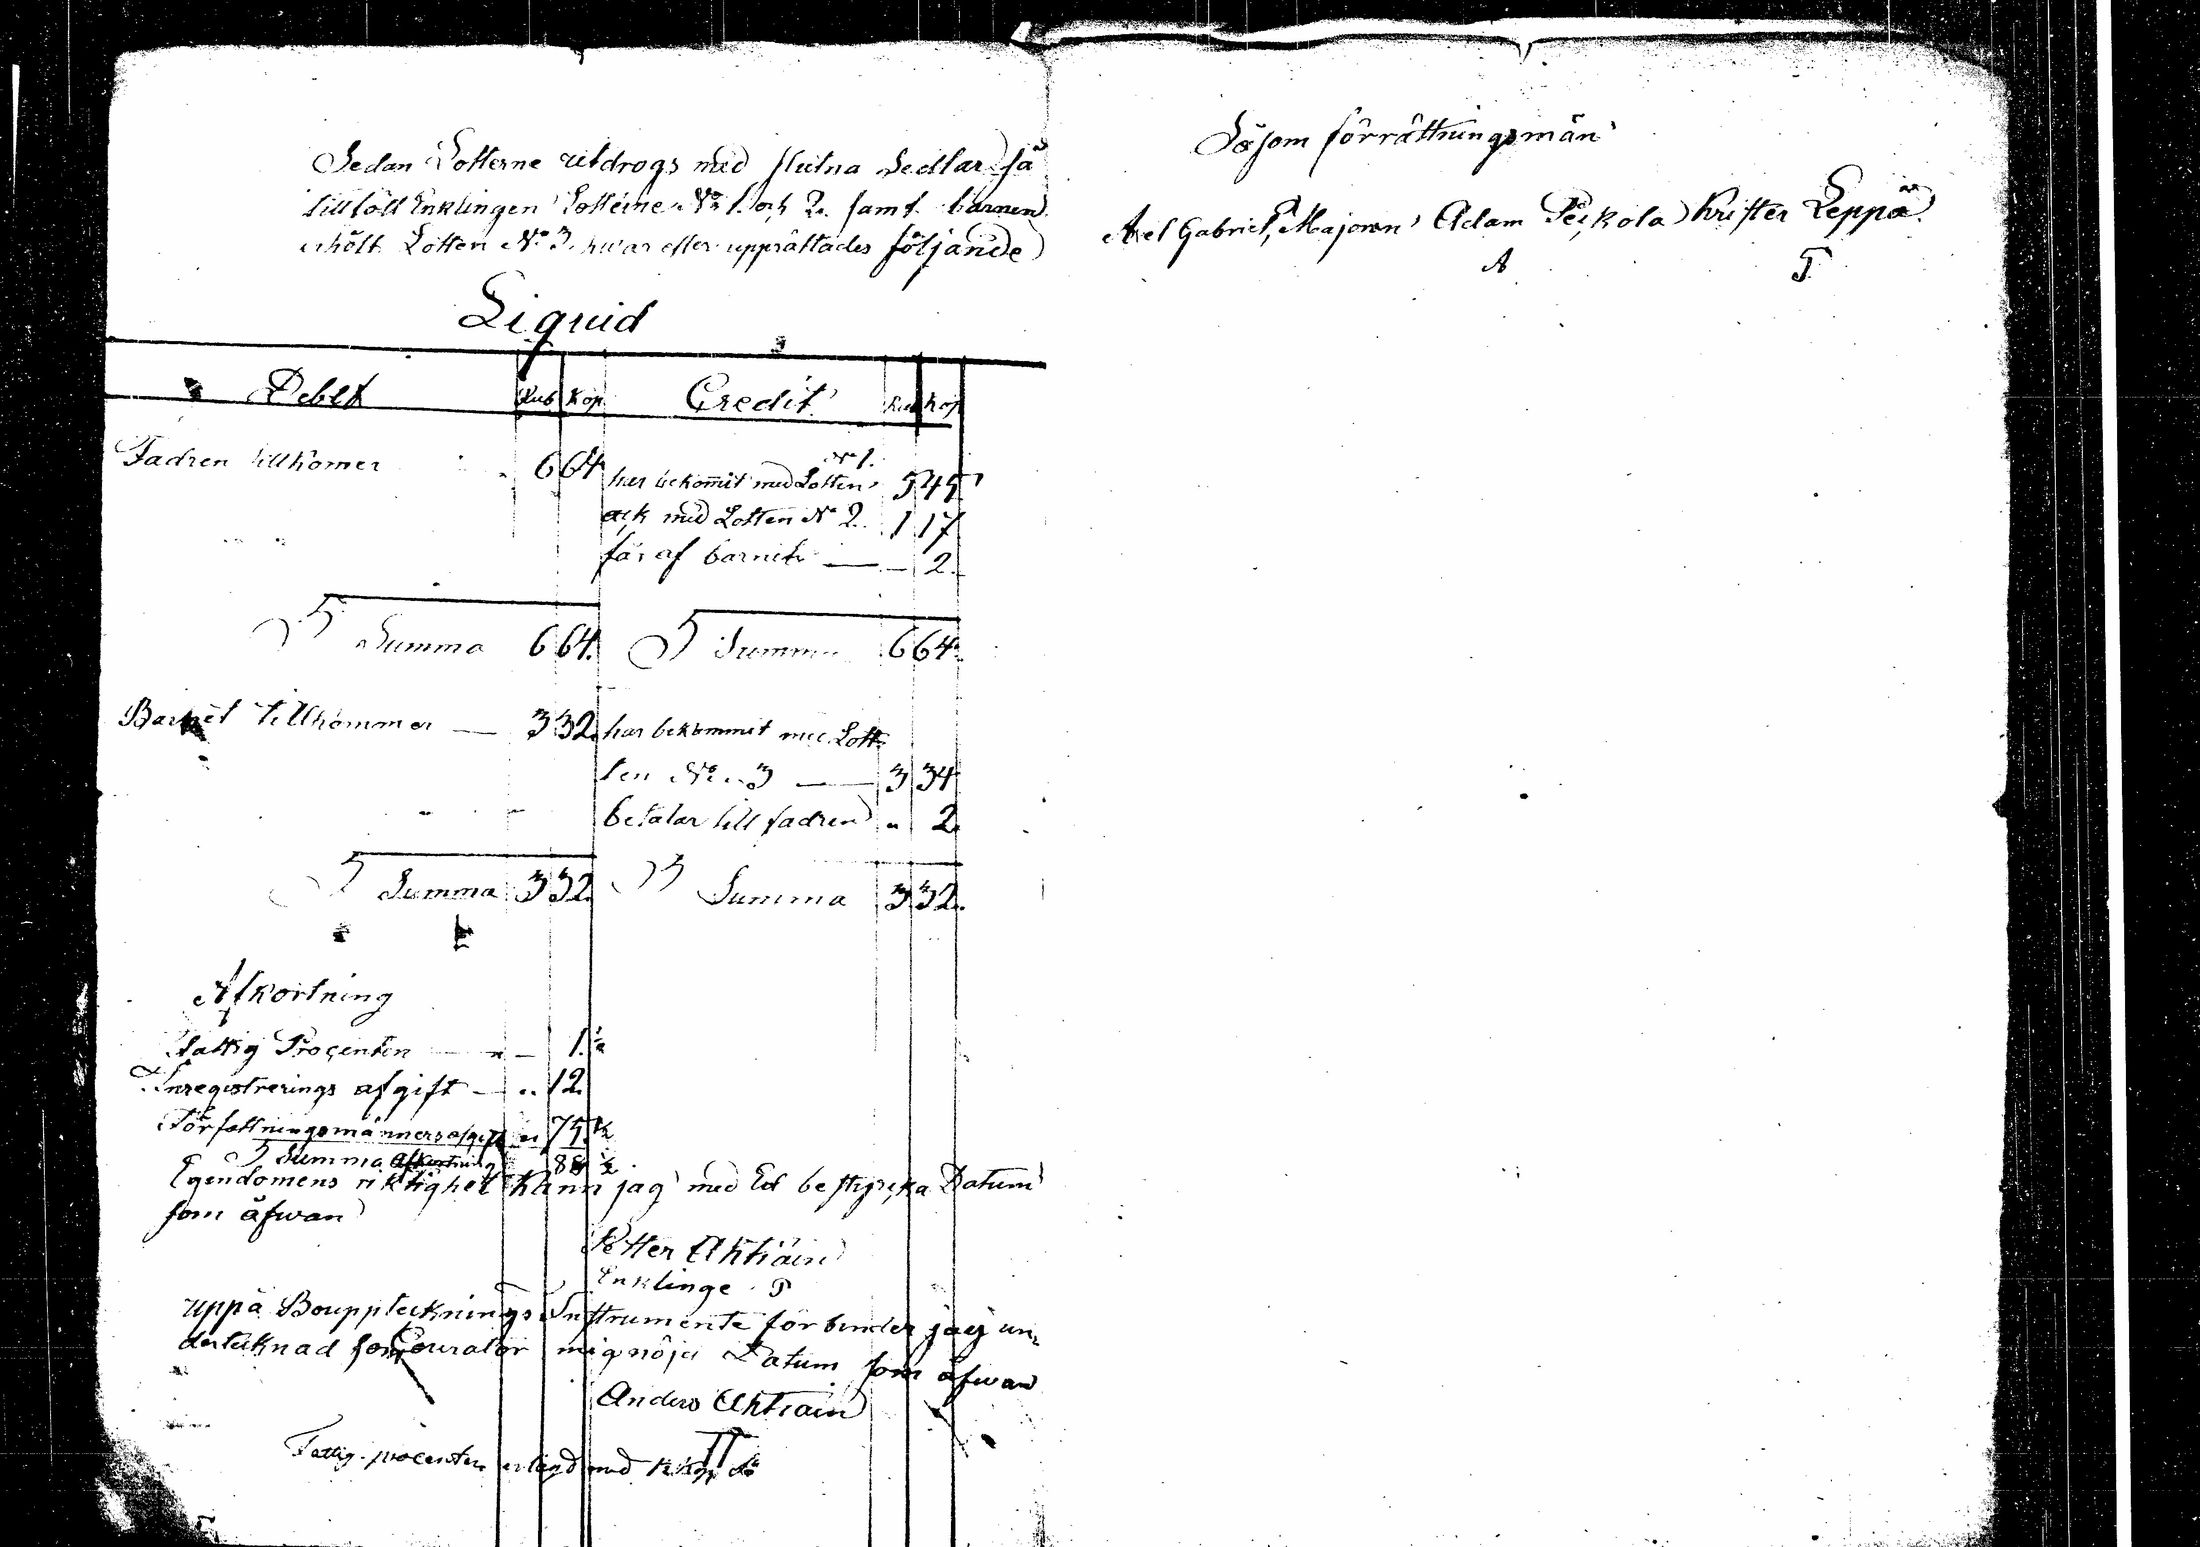 Sedan Lotterne utdrogs med slutna Sedlar så
tillföll Enklingen Lotterne No 1. och 2. samt barnen
erhölt Lotten No 3. hwar efter upprättades följande
Liquid
Debet Rub Kop Credit Rub Kop
Fadren tillkomer 6 64 har bekommit med Lotten No 1. 5 45
ock med Lotten No 2. 1 17
får af barnet — — 2.
Summa 6 64. Summa 6 64.
Barnet tillkommer — 3 32. har bekommit med Lott-
ten No 3 — 3 34
betalar till fadren " 2.
Summa 3 32. Summa 3 32.
Afkortning
Fattig Procenten — " — 1. ½
Inregistrerings afgift — " 12.
Förrättningsmänners afgift " 75.
Summa Afkortning ½
Egendomens riktighet kann jag med Ed bestyrcka Datum
som äfwan
Petter Ahtiain
Enklinge P
uppå Boupptecknings Instrumente förbinder jag un-
dertecknad som Courator mig nöja Datum som äfwan
Anders Ahtiain
Fattig procenten erlagd med
Såsom förrättningsmän
Axel Gabriel, Majoren Adam Peckola Krister Leppä
A